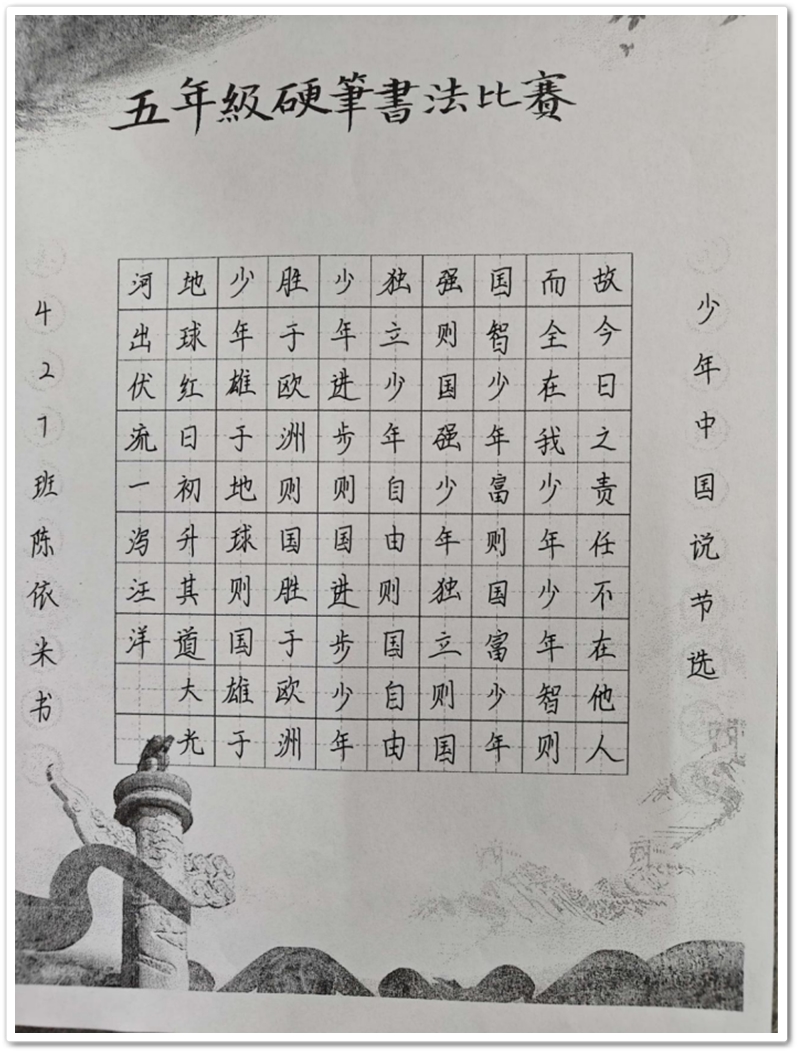 五年級硬筆書法比賽
少年中国说节选
故今日之责任不在他人
而全在我少年少年智则
国智少年富则国富少年
强则国强少年独立则国
独立少年自由则国自由
少年进步则国进步少年
胜于欧洲则国胜于欧洲
少年雄于地球则国雄于
地球红日初升其道大光
河出伏流一泻汪洋
427班陈依米书